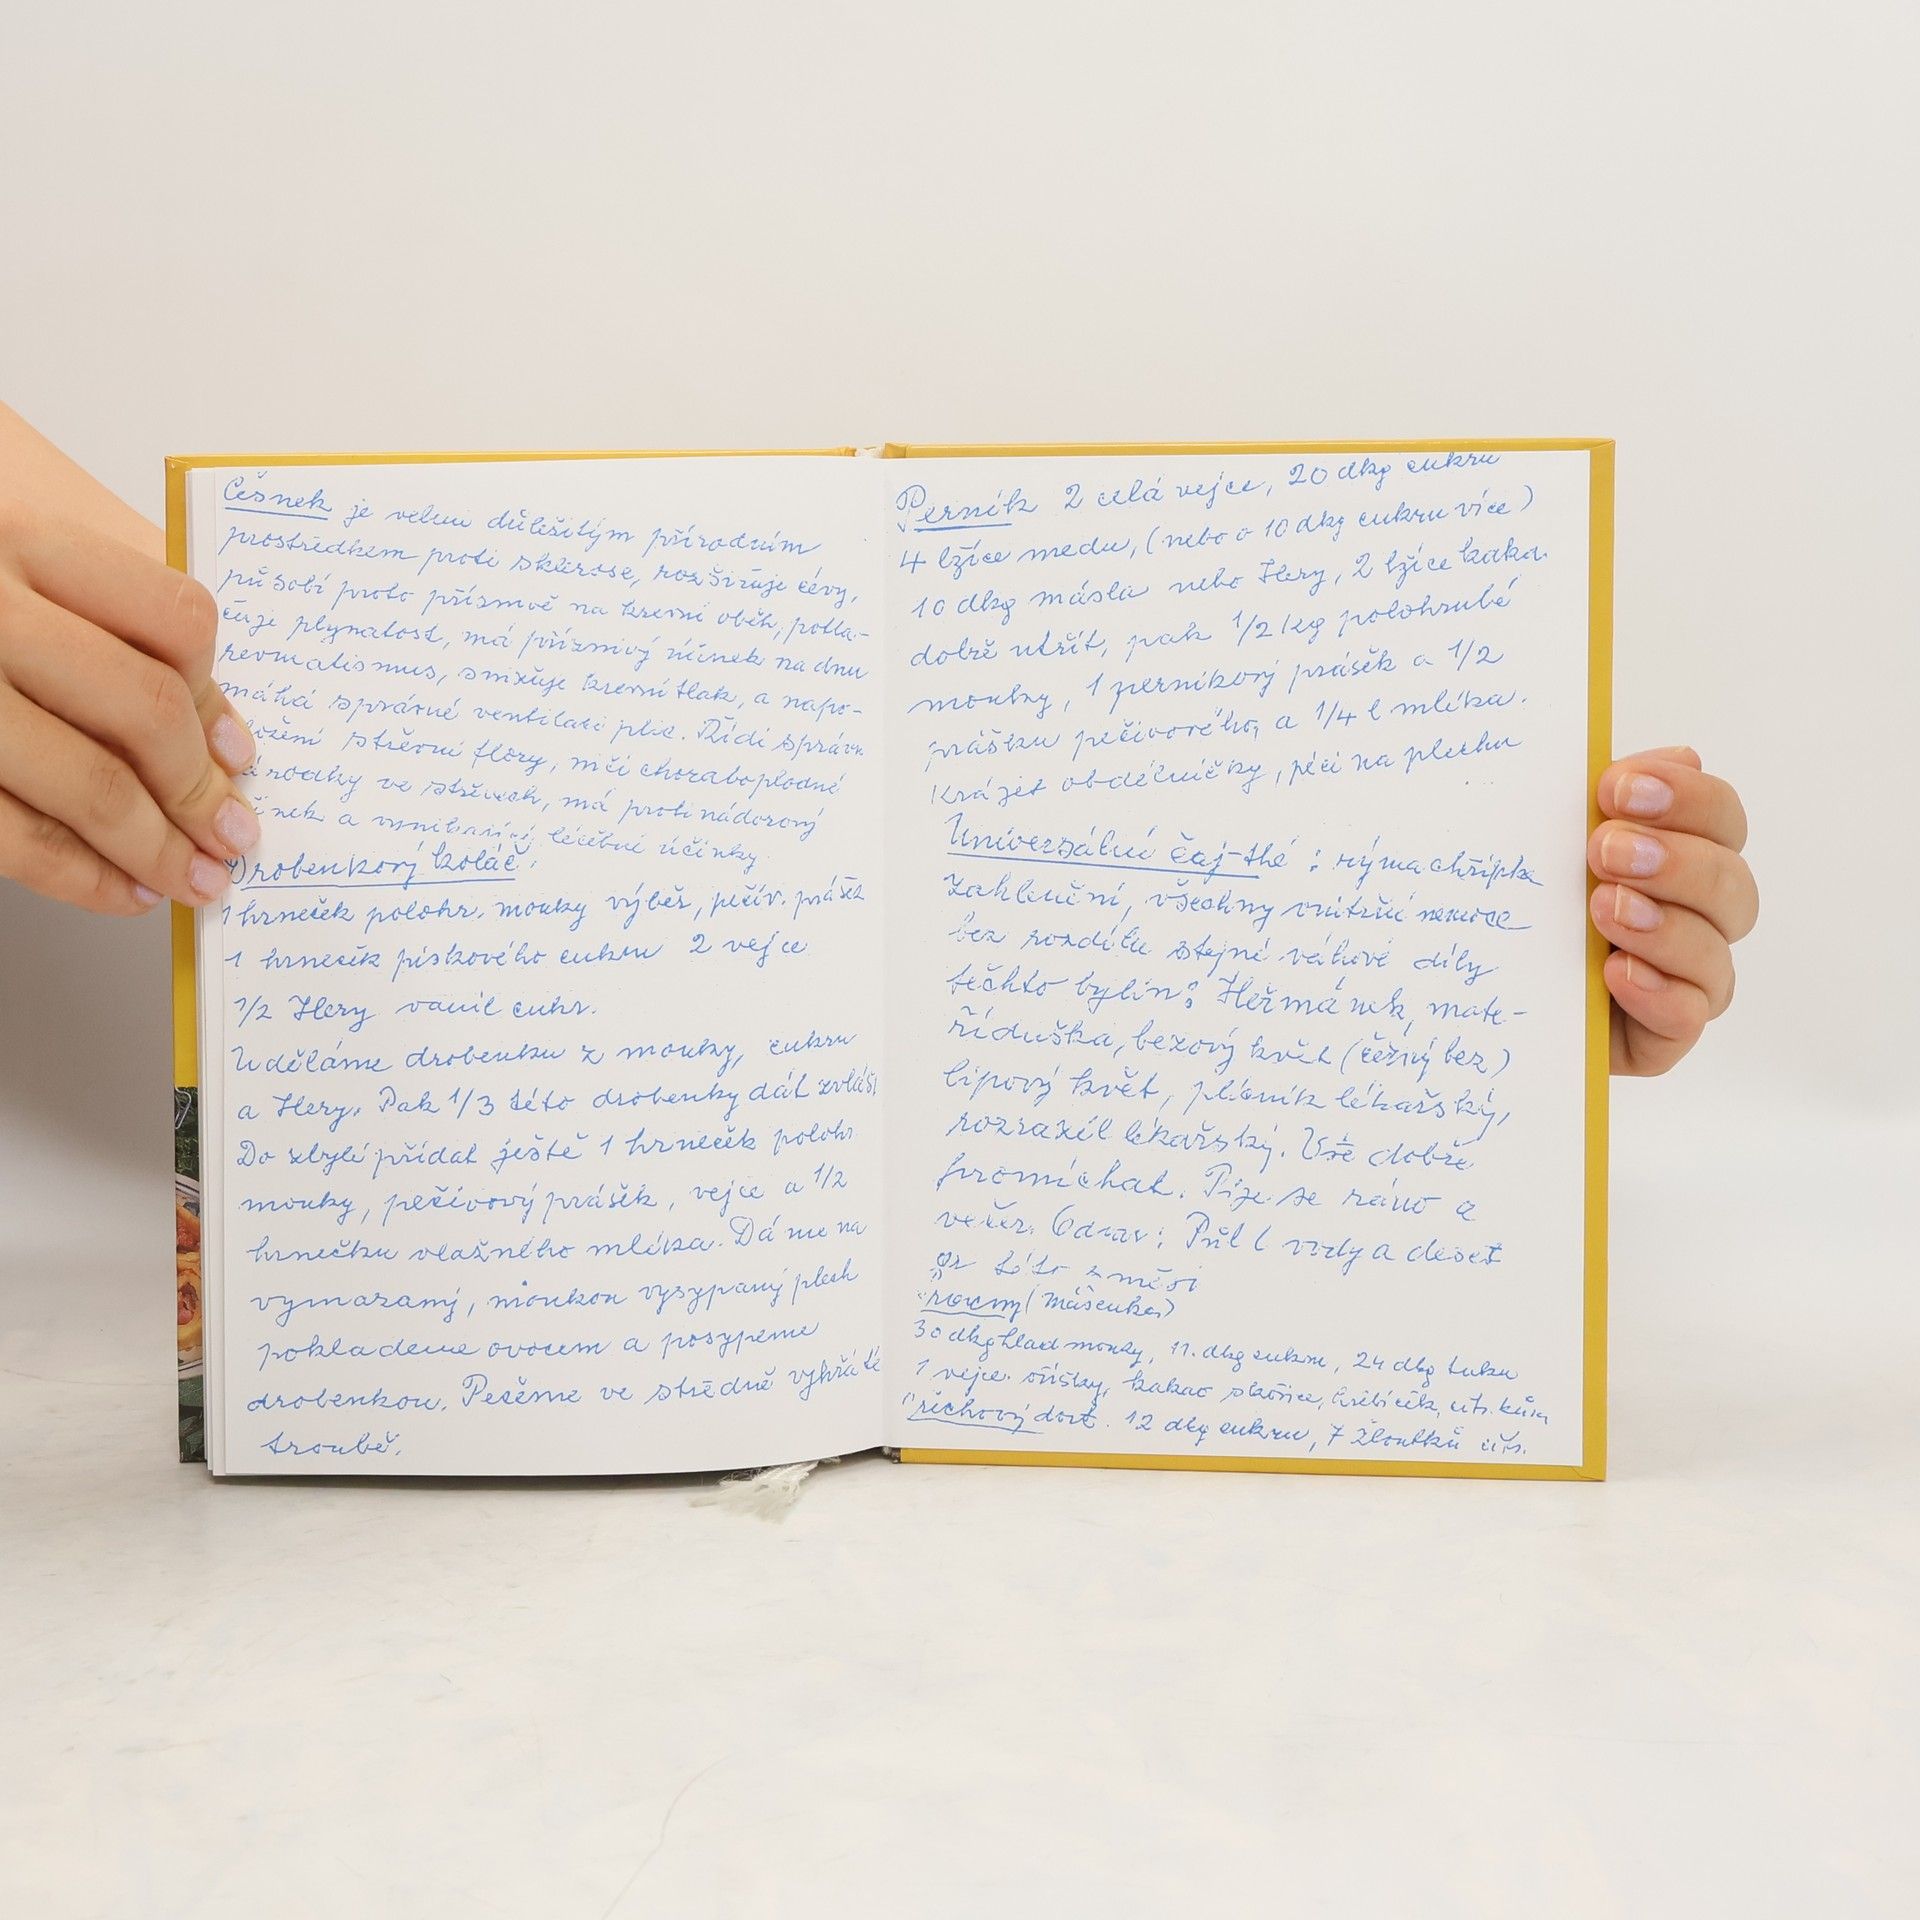 Česnek je velmi důležitým přírodním
prostředkem proti sklerose, rozšiřuje cévy,
působí proto příznivě na krevní oběh, potla-
čuje plynatost, má příznivý účinek na dnu
revmatismus, snižuje krevní tlak, a napo-
máhá správné ventilaci plic. Řídí správn
ložení střevní flory, ničí choroboplodné
zárodky ve střevech, má protinádorový
inek a vynikající léčebné účinky.
Drobenkový koláč
1 hrneček polohr. mouky výběr, pečiv. prášek
1 hrneček pískového cukru 2 vejce
1/2 Hery vanil cukr.
Uděláme drobenku z mouky, cukru
a Hery. Pak 1/3 této drobenky dát zvlášť
Do zbylé přidat ještě 1 hrneček polohr
mouky, pečivový prášek, vejce a 1/2
hrnečku vlažného mléka. Dáme na
vymazaný, moukou vysypaný plech
poklademe ovocem a posypeme
drobenkou. Pečeme ve středně vyhřáté
troubě.
Perník 2 celá vejce, 20 dkg cukru
4 lžíce medu, (nebo o 10 dkg cukru více)
10 dkg másla nebo Hery, 2 lžíce kaka
dobře utřít, pak 1/2 kg polohrubé
mouky, 1 perníkový prášek a 1/2
prášku pečivového, a 1/4 l mléka.
Krájet obdélníčky, péci na plechu
Universální čaj-thé : rýma chřipka
zahlenění, všechny vnitřní nemoce
bez rozdílu stejné váhové díly
těchto bylin: Heřmánek, mate-
řídouška, bezový květ (černý bez)
lipový květ, plicník lékařský,
rozrazil lékařský. Vše dobře
promíchat. Pije se ráno a
večer. Odvar: Půl l vody a deset
gr této směsi
(Mášenka)
30 dkg hlad mouky, 11. dkg cukru, 24 dkg tuku
1 vejce. oříšky, kakao skořice, hřebíček, citr. kůra
Ořechový dort. 12 dkg cukru, 7 žloutků citr.